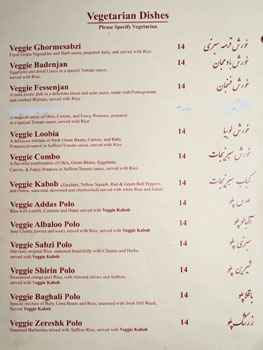 Vegetarian Dishes
Please Specify Vegetarian
Veggie Ghormesabzi 14 خورش قرمه سبزی
Fresh Green Vegetables and Herb sauce, prepared daily, and served with Rice
Veggie Badenjan 14 خورش بادمجان
Eggplants and dried Limes in a special Tomato sauce,
served with Rice
Veggie Fessenjan 14 خورش فسنجان
A most exotic dish in a delicious sweet and sour sauce, made with Pomegranate,
and crushed Walnuts, served with Rice
in a special Tomato sauce, served with Rice
Veggie Loobia 14 خورش لوبیا
A delicious mixture of fresh Green Beans, Carrots, and Baby
Potatoes prepared in Saffron/Tomato sauce, served with Rice
Veggie Combo 14 خورش سبزیجات
A flavorful combination of Okra, Green Beans, Eggplants,
Carrots, & Fancy Potatoes in Saffron/Tomato sauce, served with Rice
Veggie Kabob (Zucchini, Yellow Squash, Red & Green Bell Peppers, 14 کباب سبزیجات
and Onions, seasoned, skewered and char-broiled)
Veggie Addas Polo 14 عدس پلو
Rice with Lentils, Currants and Dates served with Veggie Kabob
Veggie Albaloo Polo 14 آلبالو پلو
Sour Cherry, (sweet and sour), mixed with Rice, served with Veggie Kabob
Veggie Sabzi Polo 14 سبزی پلو
Our tasty original Rice, seasoned beautifully with Cilantro and Herbs,
served with Veggie Kabob
Veggie Shirin Polo 14 شیرین پلو
Sweetened orange peel Rice, with Almond slivers and Saffron,
served with Veggie Kabob
Veggie Baghali Polo 14 باقلا پلو
Special mixture of Baby Lima Beans and Rice, seasoned with fresh Dill Weed,
Served with Veggie Kabob
Veggie Zereshk Polo 14 زرشک پلو
Seasoned Barberries mixed with Saffron Rice, served with Veggie Kabob